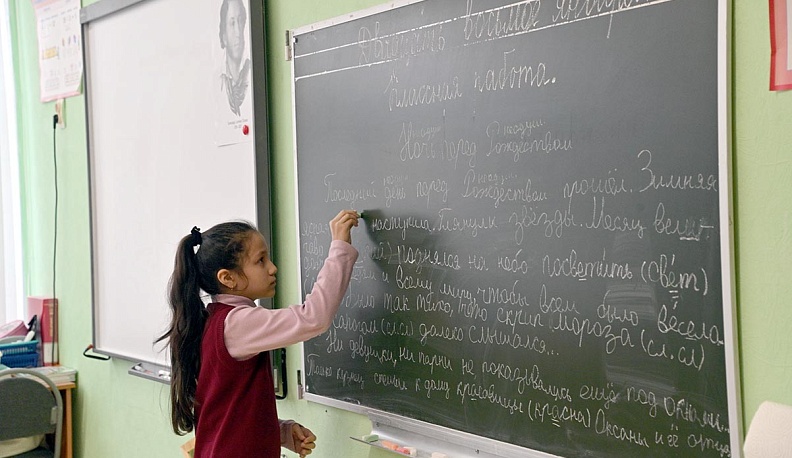 Двадцать восьмое января.
Классная работа.
Ночь перед Рождеством
Последний день перед Рождеством прошёл. Зимняя
ясная наступила. Глянули звёзды. Месяц велич-
поднялся на небо посветить (свет)
и всему миру, чтобы всем было весело.
было так тихо, что скрип мороза (сл.сл)
сапогом (сл.сл) далеко слышался...
Ни девушки, ни парни не показывались ещё под окнами...
Только кузнец спешил к дому красавицы (красна) Оксаны и её отца